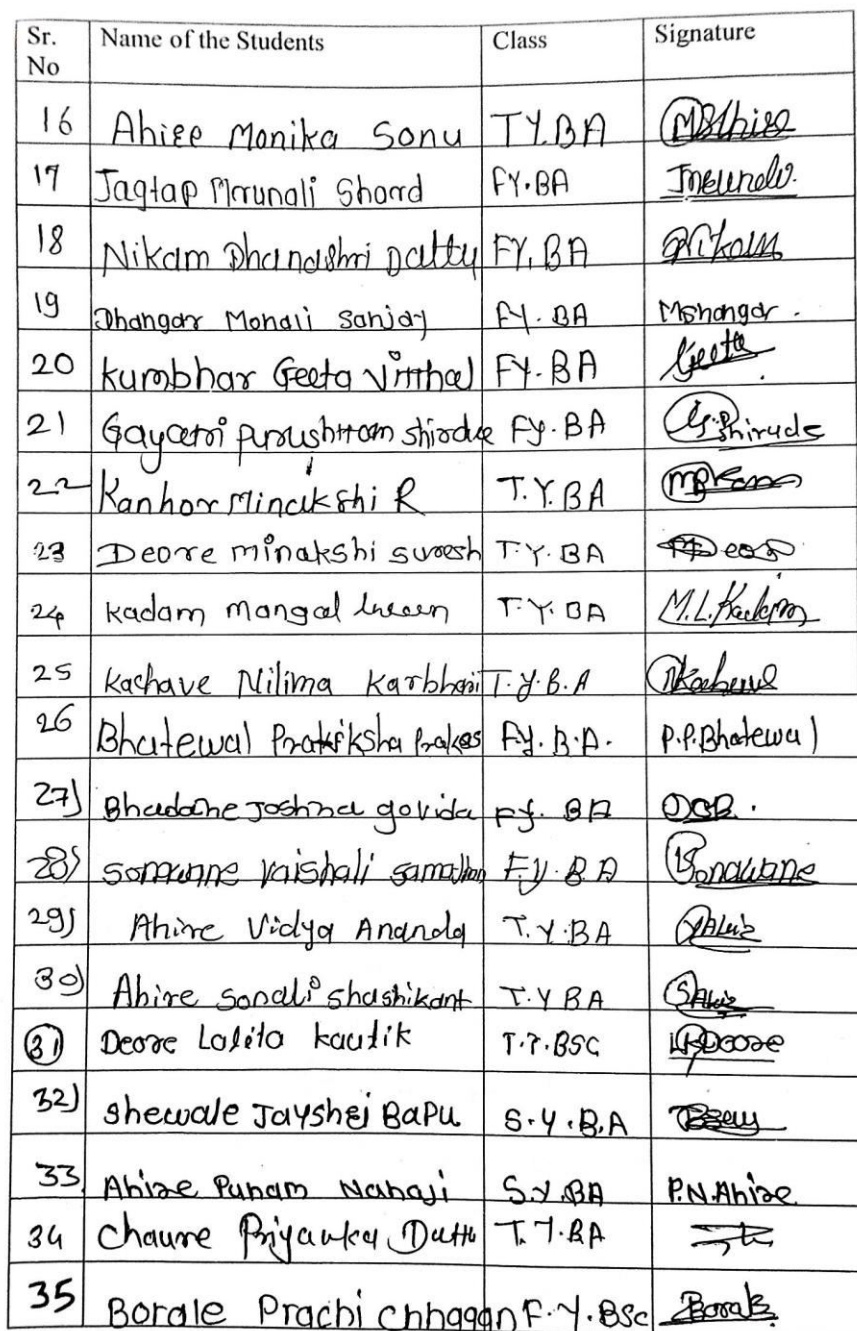 Sr. No Name of the Students Class Signature
16 Ahire Monika Sonu T.Y.BA MSAhire
17 Jagtap Mrunali Sharad FY.BA
18 Nikam Dhanashri Dattu FY.BA Nikam
19 Dhangar Monali Sanjay FY.BA
20 Kumbhar Geeta Vitthal FY.BA Geeta
21 Gayatri Purushttam Shirude Fy.BA G.P.Shirude
22 Kanhor Minakshi R T.Y.BA
23 Deore minakshi suresh T.Y.BA Deore
24 kadam mangal T.Y.BA M.L.Kadam
25 Kachave Nilima Karbhari T.Y.B.A
26 Bhatewal Pratiksha Prakas F.y.B.A. P.P.Bhatewal
27) Bhadane Joshna govida Fy.BA
28) vaishali samadhan F.y.BA Sonawane
29) Ahire Vidya Ananda T.Y.BA VAhire
30) Ahire sonali shashikant T.Y BA SAhire
31 Deore Lalita kautik T.Y.BSC LKDeore
32) Shewale Jayshri BaPu S.Y.B.A
33 Ahire Punam Nanaji S.Y.BA P.N.Ahire
34 Chaure Priyanka Dattu T.Y.BA
35 Borale Prachi chhagan F.Y.BSc Borale